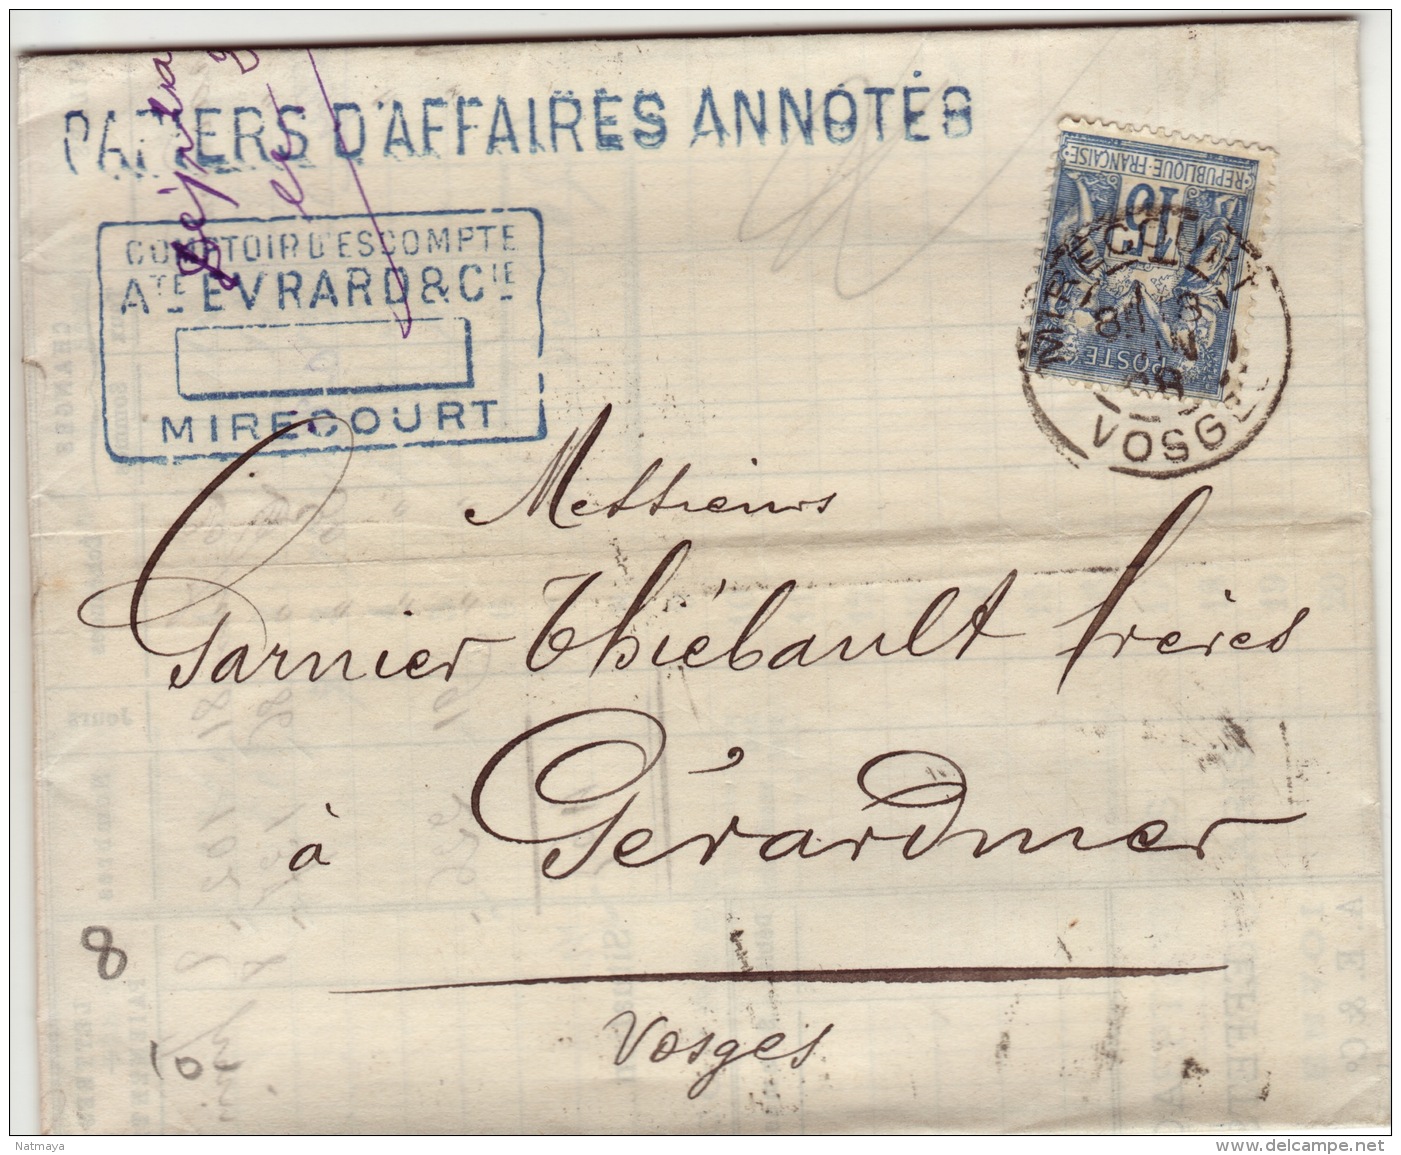 PAPIERS D'AFFAIRES ANNOTÉS
COMPTOIR D'ESCOMPTE
ATE EVRARD & CIE
MIRECOURT
REPUBLIQUE FRANÇAISE
15
POSTE
MIRECOURT
VOSGES
Messieurs
Garnier Thiébault frères
à Gérardmer
Vosges
8
10
Natmaya
delcampe.net